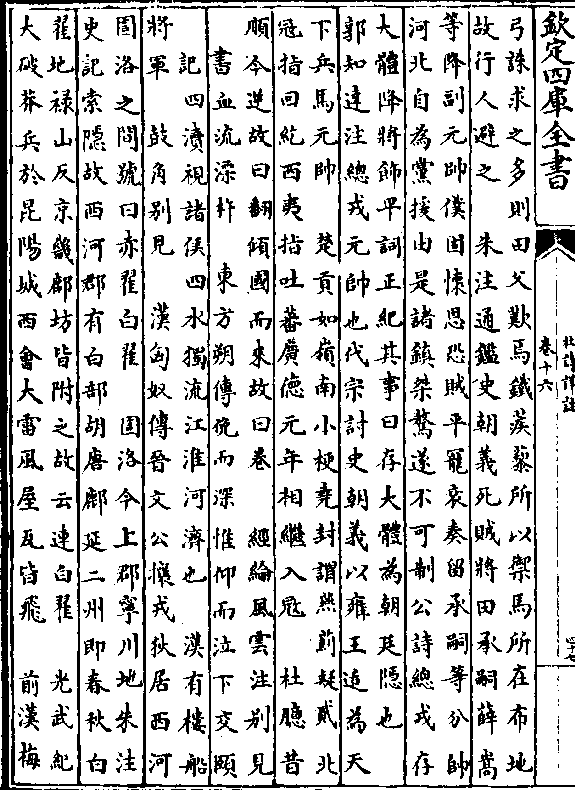 欽定四庫全書
杜詩詳註
卷十六
四十七
弓誅求之多則田父歎焉鐵蒺藜所以禦馬所在布地
故行人避之　朱注通鑑史朝義死賊將田承嗣薛嵩
等降副元帥僕固懷恩恐賊平寵衰奏留承嗣等分帥
河北自為黨援由是諸鎮桀驁遂不可制公詩總戎存
大體降將飾卑詞正紀其事曰存大體為朝廷隱也
郭知達注總戎元帥也代宗討史朝義以雍王适為天
下兵馬元帥　楚貢如嶺南小梗堯封謂燕薊疑貳北
冦指回紇西夷指吐蕃廣德元年相繼入冦　杜臆昔
順今逆故曰翻傾國而來故曰卷　經綸風雲注别見
書血流漂杵　東方朔傳俛而深惟仰而泣下交頤
記四瀆視諸侯四水獨流江淮河濟也　漢有樓船
將軍　鼓角别見　漢匈奴傳晉文公攘戎狄居西河
固洛之間號曰赤翟白翟　固洛今上郡寧川地朱注
史記索隱故西河郡有白部胡唐鄜延二州即春秋白
翟地禄山反京畿鄜坊皆附之故云連白翟　光武紀
大破莽兵於昆陽城西會大雷風屋瓦皆飛　前漢梅